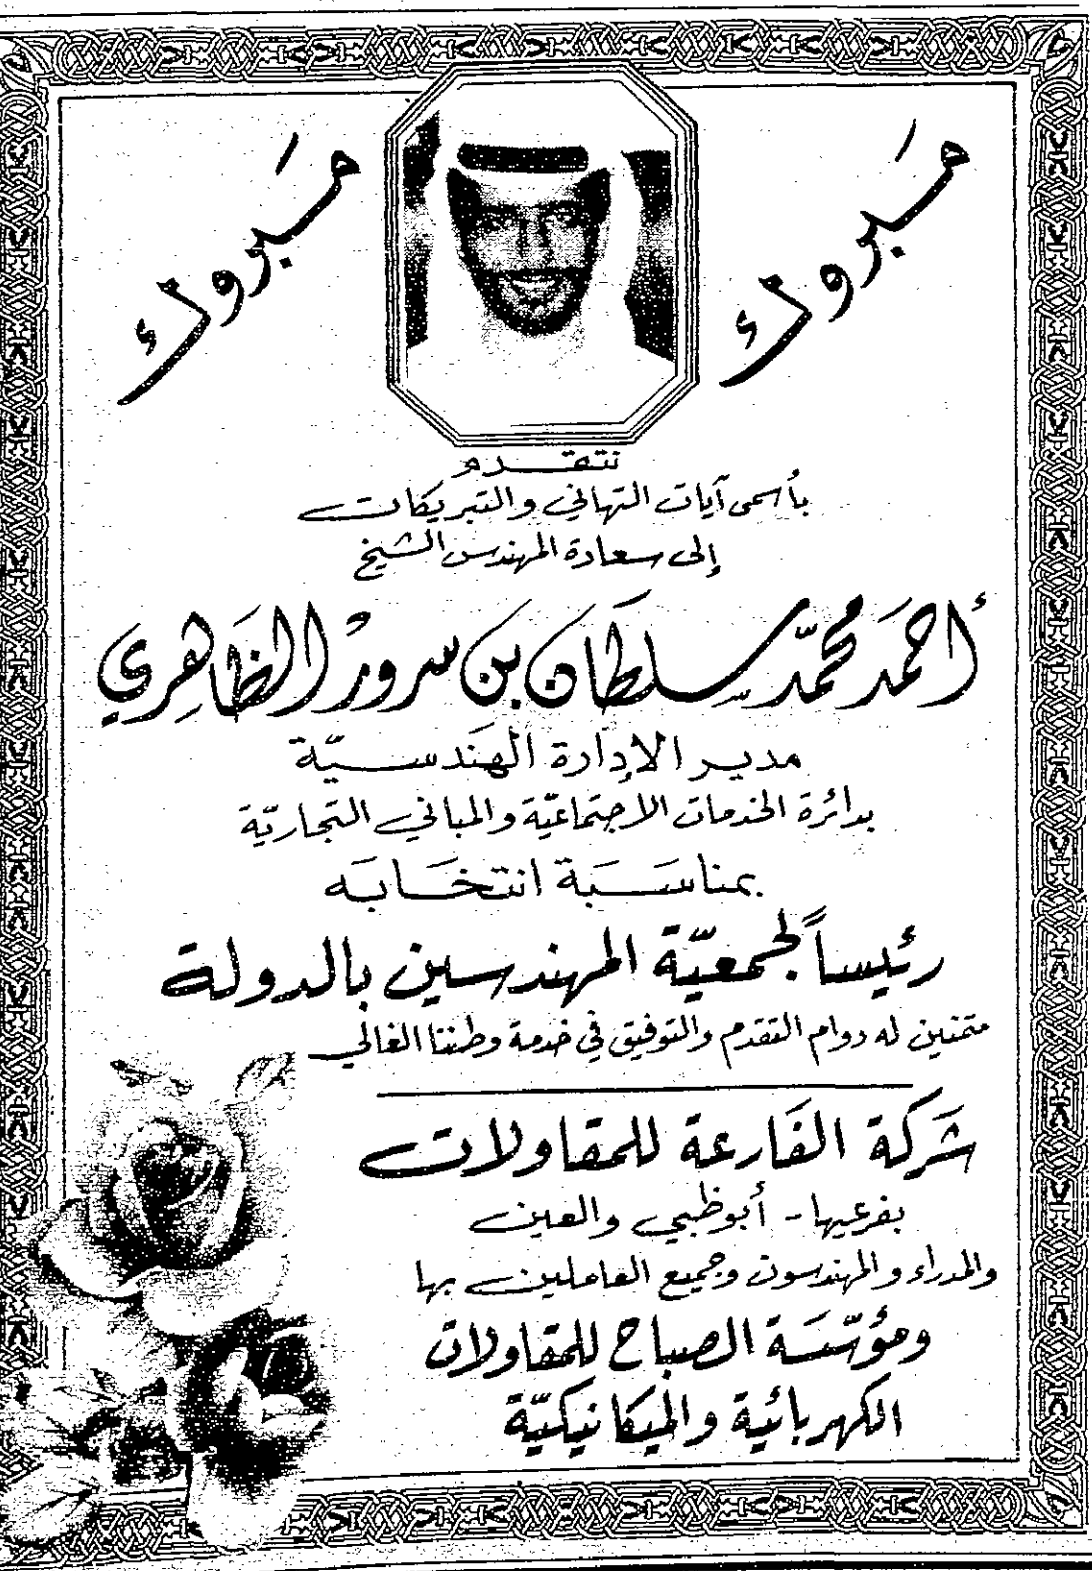 مبروك
مبروك
نتقدم
بأسمى آيات التهاني والتبريكات
إلى سعادة المهندس الشيخ
أحمد محمّد سلطان بن سرور الظاهري
مدير الإدارة الهندسيّة
بدائرة الخدمات الاجتماعيّة والمباني التجاريّة
بمناسبة انتخابه
رئيساً لجمعيّة المهندسين بالدولة
متمنين له دوام التقدم والتوفيق في خدمة وطننا الغالي
شركة الفارعة للمقاولات
بفرعيها - أبوظبي والعين
والمدراء والمهندسون وجميع العاملين بها
ومؤسّسة الصباح للمقاولات
الكهربائية والميكانيكيّة